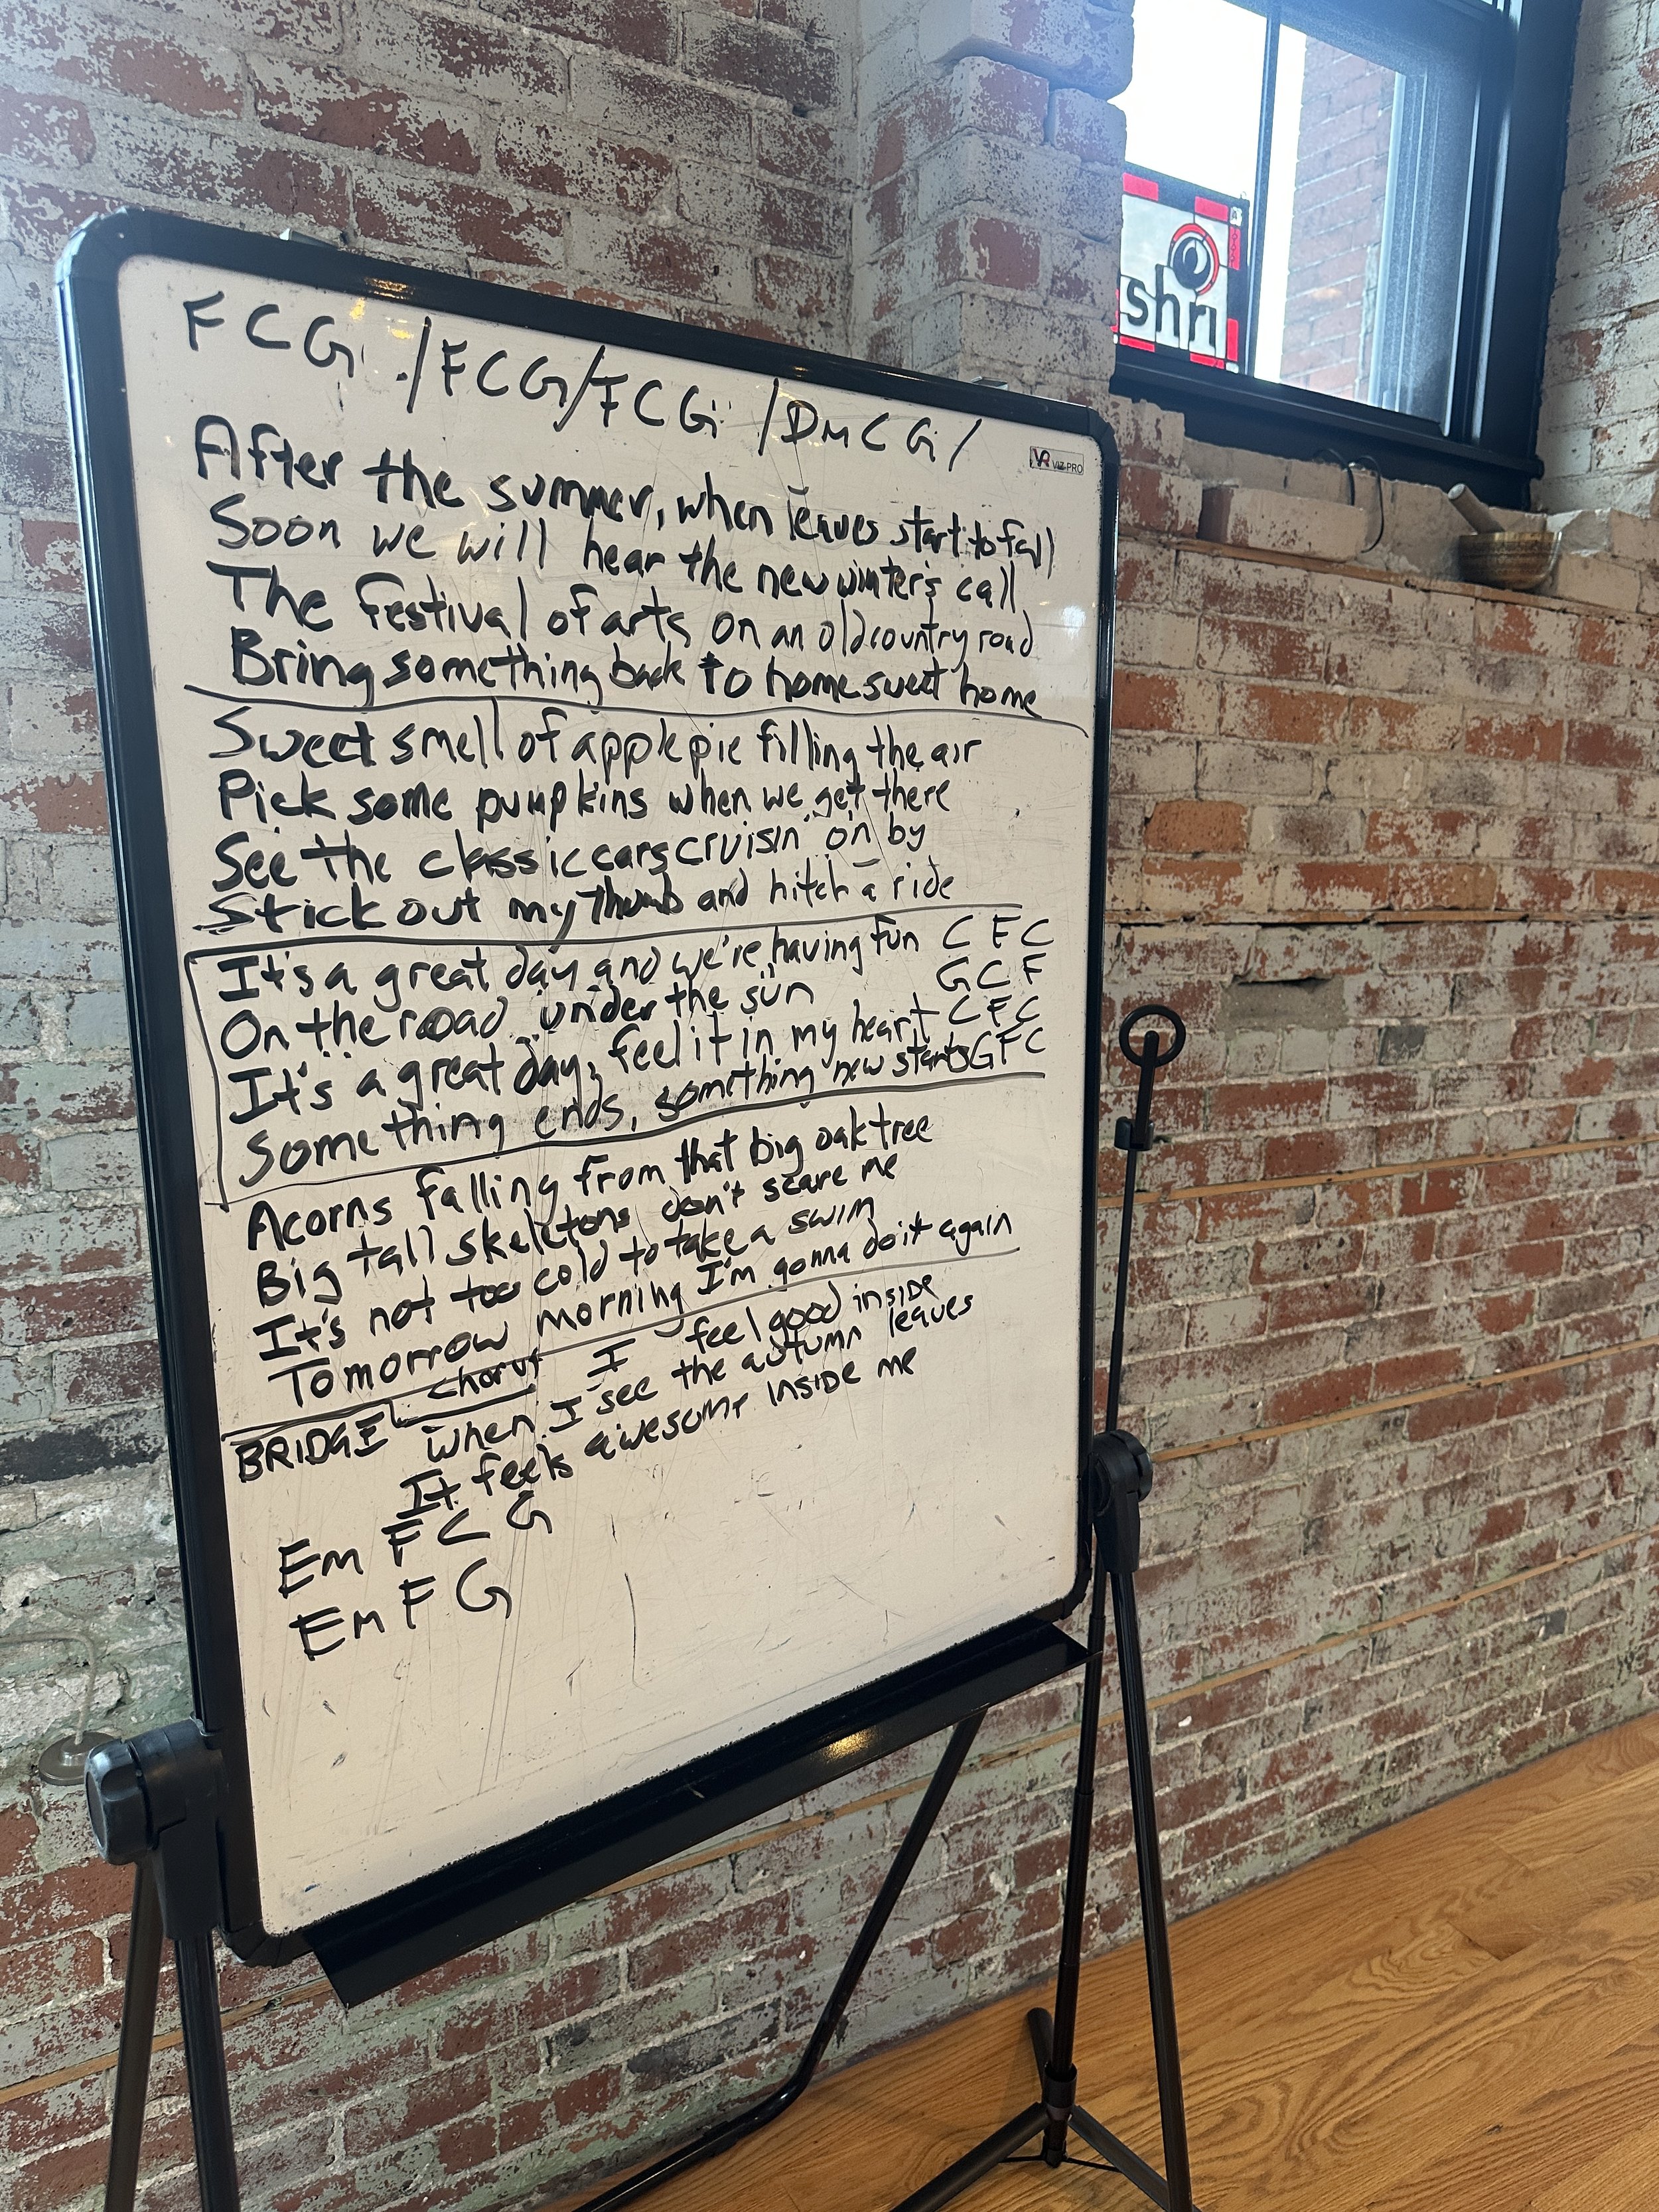 F C G ./F C G/F C G /Dm C G/
After the summer, when leaves start to fall
Soon we will hear the new winter's call
The festival of arts on an old country road
Bring something back to home sweet home
Sweet smell of apple pie filling the air
Pick some pumpkins when we get there
See the classic cars cruisin' on by
Stick out my thumb and hitch a ride
It's a great day and we're having fun C F C
On the road under the sun G C F
It's a great day, feel it in my heart C F C
Something ends, something new starts G F C
Acorns falling from that big oak tree
Big tall skeletons don't scare me
It's not too cold to take a swim
Tomorrow morning I'm gonna do it again
chorus I feel good inside
BRIDGE When I see the autumn leaves
It feels awesome inside me
Em F C G
Em F G
VR VIZ-PRO
shri